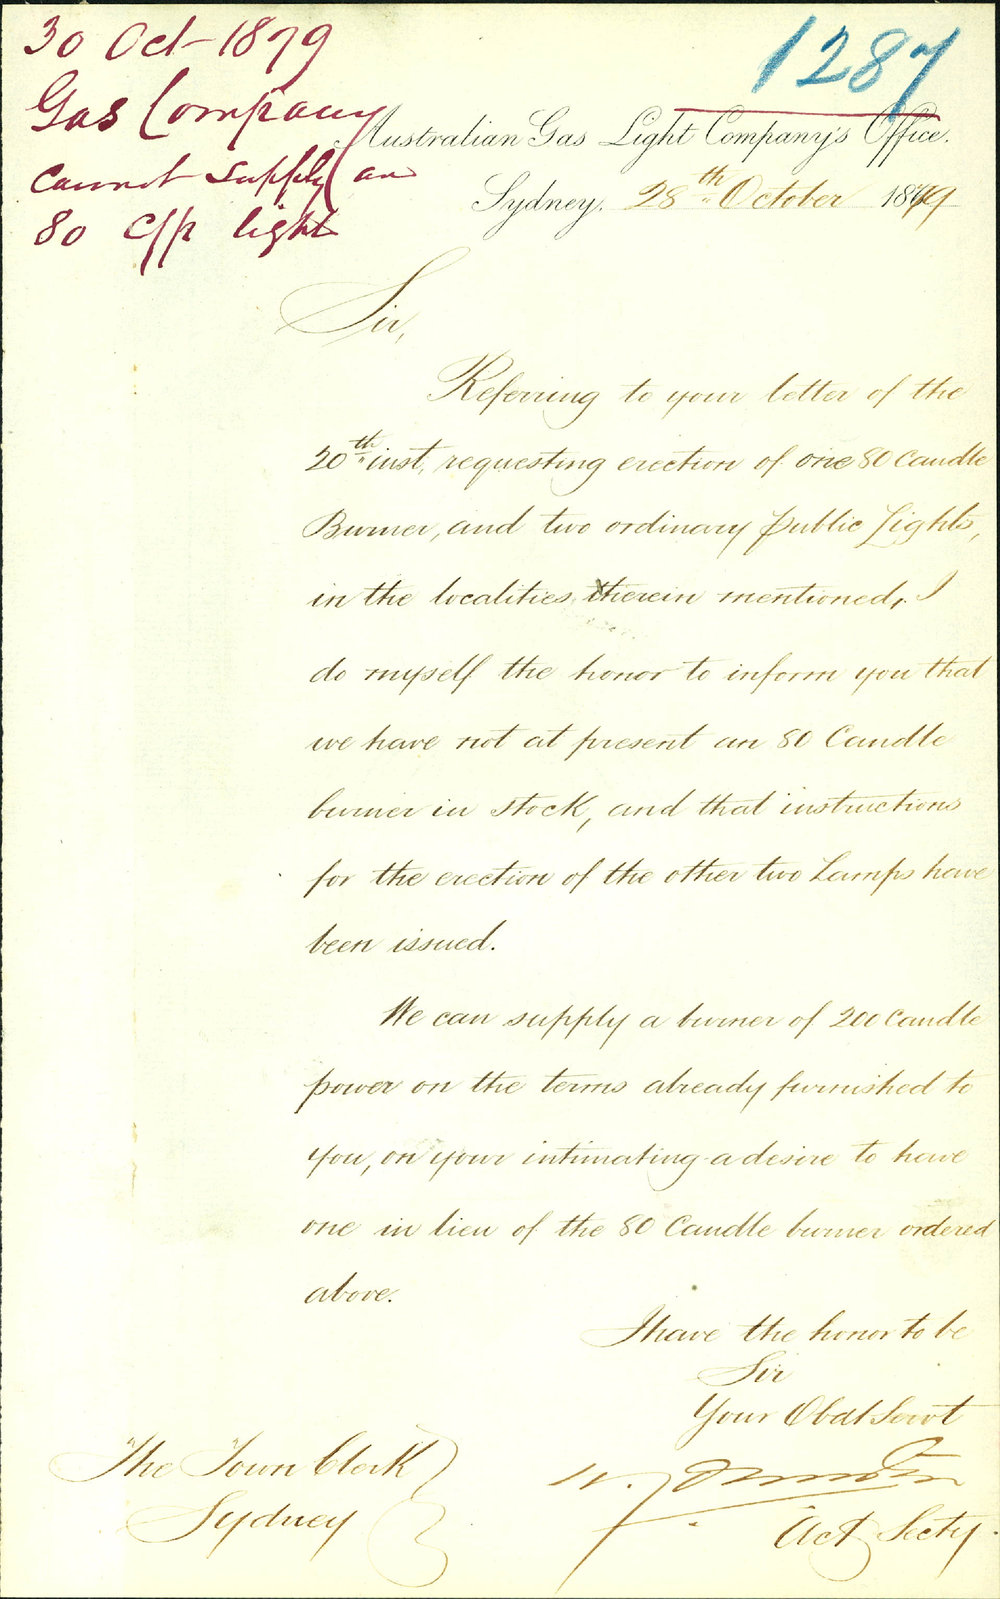 30 Oct - 1879
Gas Company
cannot supply an
80 c/p light
1287
Australian Gas Light Company's Office.
Sydney, 28th October 1879
Sir,
Referring to your letter of the
20th inst, requesting erection of one 80 Candle
Burner, and two ordinary public Lights,
in the localities therein mentioned, I
do myself the honor to inform you that
we have not at present an 80 Candle
burner in stock, and that instructions
for the erection of the other two Lamps have
been issued.
We can supply a burner of 200 Candle
power on the terms already furnished to
you, on your intimating a desire to have
one in lieu of the 80 Candle burner ordered
above.
I have the honor to be
Sir
Your Obdt Servt
W.
Act Secty.
The Town Clerk
Sydney